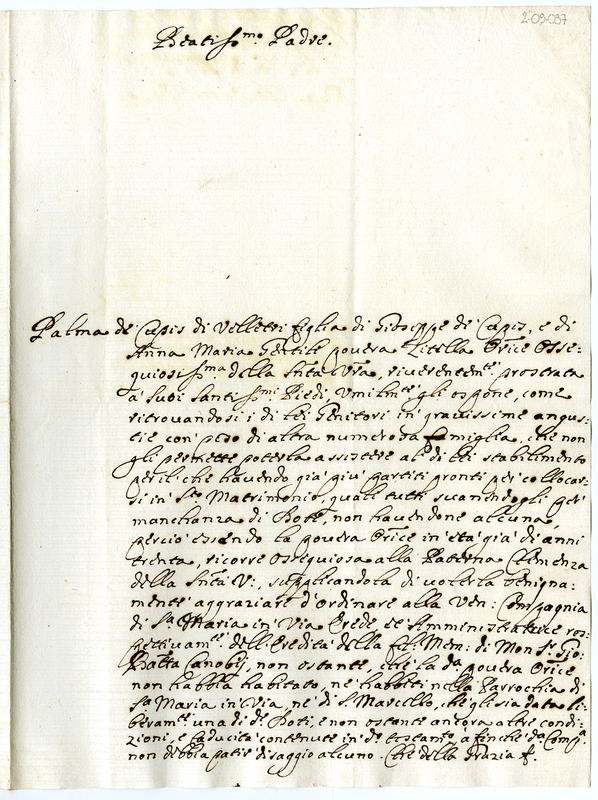 2-09-097
Beatiss.mo Padre.
Palma de Capis di Velletri figlia di Gioseppe de Capis, e di
Anna Maria Gentile povera Zitella Or̃ice Osse-
quiosiss.ma della Sn̄tà Vr̃a, riverentem.te prostrata
a' suoi Santiss.mi Piedi, umilm.te gli espone, come
ritrovandosi i di lei Genitori in gravissime angus-
tie con peso di altra numerosa famiglia, che non
gli permette poterla assistere al di lei stabilimento
per il che havendo già più partiti pronti per collocar-
si in S.to Matrimonio, quali tutti svanendogli per
manchanza di Dote, non havendone alcuna
perciò essendo la povera Or̃ice in età già di anni
trenta, ricorre ossequiosa alla Paterna Clemenza
della Sn̄tà V:, supplicandola di volerla benigna-
mente aggraziare d'ordinare alla Ven: Compagnia
di S.a Maria in Via Erede et Amministratrice res-
pettivam.te dell'Eredità della fel: Mem: di Mons.r Gio:
Batta Canobij, non ostante, che la d.a povera Or̃ice
non habbia habitato, nè habbiti nella Parrochia di
S.a Maria in Via, nè di S. Marcello, che gli sia data li-
beram.te una di d.e Doti, e non ostante ancora altre condi-
zioni, e caducità contenute in d.o testam.to, a finche d.a Comp.a
non debbia patir disaggio alcuno. Che della Grazia &.